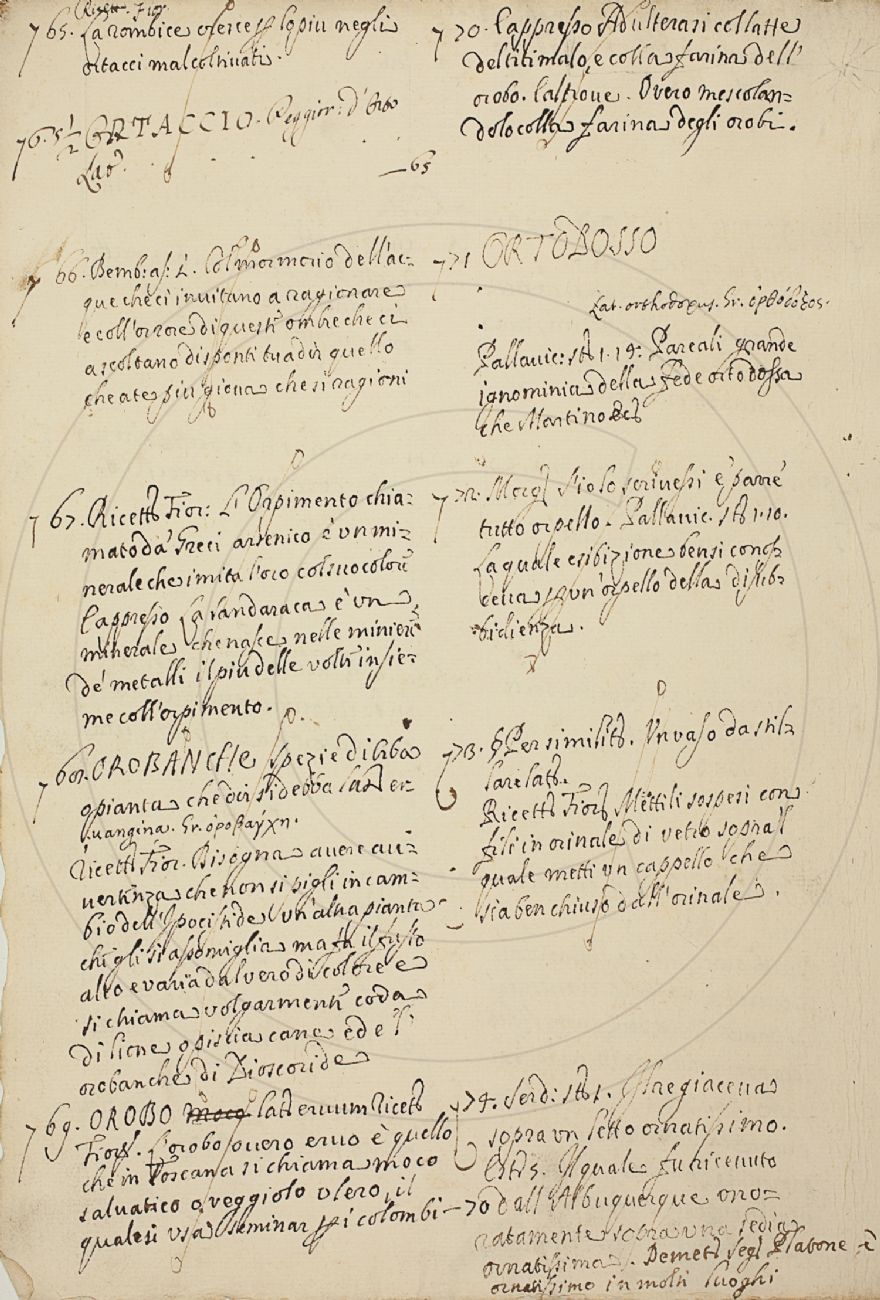 Ricett. Fior.
765. La rombice cresce p lo piu negli
ortacci mal coltivati.
765½ ORTACCIO. Peggior: d'Orto
Lat.
— 65
766. Bemb: as: 1. Col mormorio dell'ac=
que che ci invitano a ragionare
e coll'orrore di questi ombre che ci
ascoltano disponti tu a dir quello
che a te piu giova che si ragioni
767. Ricett Fior: L'Orpimento chia=
mato da Greci arsenico è un mi=
nerale che imita l'oro col suo colore
l'appresso La Sandaraca è un
minerale che nasce nelle miniere
de' metalli il piu delle volte insie=
me coll'orpimento.
768. OROBANCHE Spezie di erba
o pianta che
uangina. Gr. ὀροβάγχη.
Ricett Fior. Bisogna avere av=
vertenza che non si pigli in cam=
bio dell'Ipocistide un'altra pianta
che gli si assomiglia ma fa il fusto
alto e varia dal vero di colore e
si chiama volgarmente coda
di lione o piscia cane ed e l'
orobanche di Dioscoride
769. OROBO lat ervum Ricett
Fior. L'orobo ouero ervo è quello
che in Toscana si chiama moco
salvatico o veggiolo vlero, il
quale si usa seminar p i colombi — 70
770. l'appresso Adulterasi col latte
del titimalo, e colla farina dell'
orobo. l'altrove. Overo mescolan=
dolo colla farina degli orobi.
771 ORTODOSSO
Lat. orthodoxus. Gr. ὀρθόδοξος.
Pallavic: st 1. 19: Pareali grande
ignominia della fede ortodossa
che Martino
772. Morg S'io lo scrivessi è parrè
tutto orpello. Pallavic. st 1. 10.
La quale esibizione bensi conos=
deva p un'orpello della disub=
bidienza.
773. § Per similit. Un vaso da stil=
lare lat.
Ricett Fior Mettili sospesi con
fili in orinale di vetro sopra'l
quale metti un cappello che
sia ben chiuso dall'orinale.
774. Serd: st 1. Il re giaceva
sopra un letto ornatissimo.
E st 5. Il quale fu ricevuto
dall'Albuquerque ono=
ratamente sopra una sedia
ornatissima. Demetr Segn Platone è
ornatissimo in molti luoghi